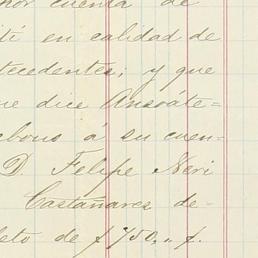 por cuenta de
ité en calidad de
tecedentes; y que
ue dice Ansoáte=
abono á su cuen-
D Felipe Neri
Castañares de-
leto de $ 750,, f.